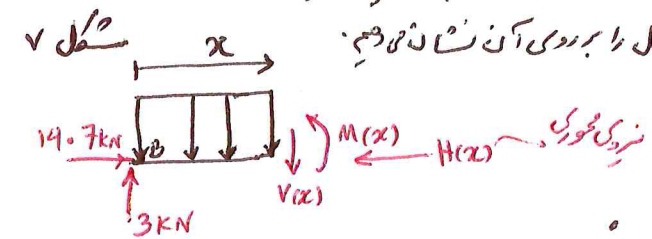 ل را بر روی آن نشان می دهیم. شکل ۷
x
14.7kN
B
M(x)
H(x)
نیروی محوری
V(x)
3KN